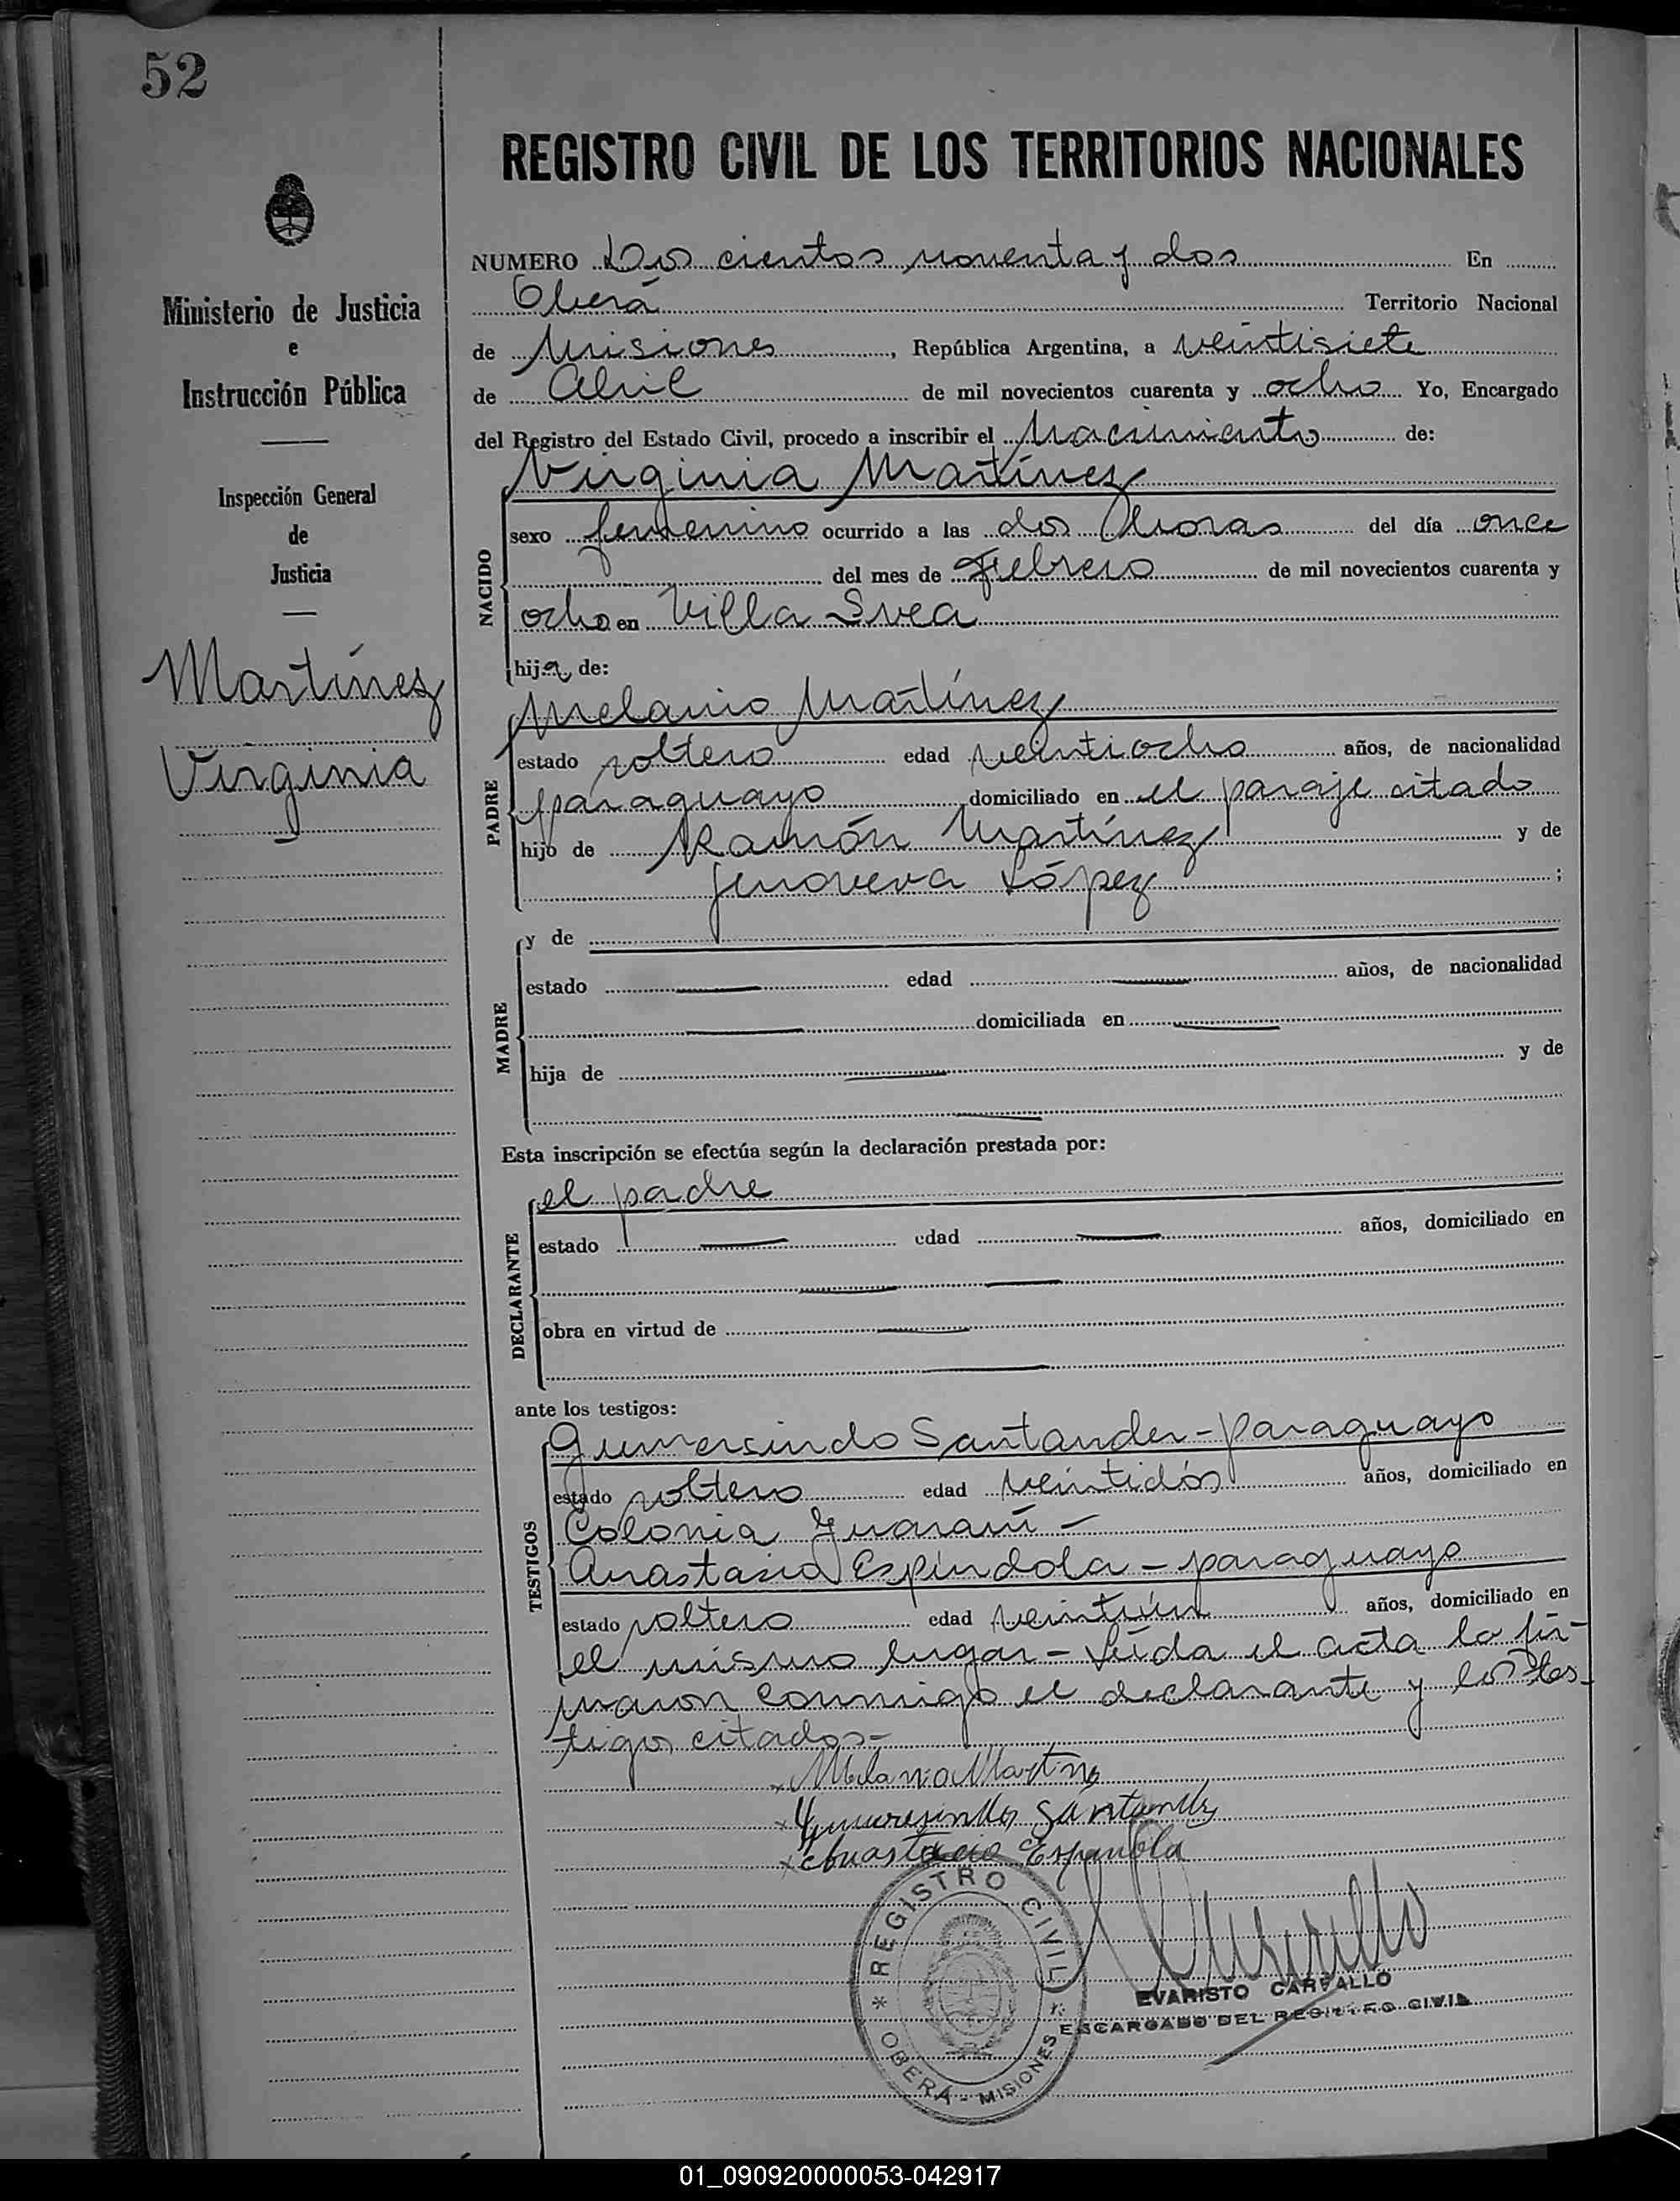 52
REGISTRO CIVIL DE LOS TERRITORIOS NACIONALES
Ministerio de Justicia
e
Instrucción Pública
Inspección General
de
Justicia
Martínez
Virginia
NUMERO Dos cientos noventa y dos En
Oberá Territorio Nacional
de Misiones, República Argentina, a veintisiete
de Abril de mil novecientos cuarenta y ocho Yo, Encargado
del Registro del Estado Civil, procedo a inscribir el Nacimiento de:
NACIDO
Virginia Martínez
sexo femenino ocurrido a las dos horas del día once
del mes de Febrero de mil novecientos cuarenta y
ocho en Villa Svea
hija de:
PADRE
Melanio Martínez
estado soltero edad veintiocho años, de nacionalidad
paraguayo domiciliado en el paraje citado
hijo de Ramón Martínez y de
Jenoveva López ;
MADRE
y de
estado edad años, de nacionalidad
domiciliada en
hija de y de
Esta inscripción se efectúa según la declaración prestada por:
DECLARANTE
el padre
estado edad años, domiciliado en
obra en virtud de
ante los testigos:
TESTIGOS
Gumersindo Santander - paraguayo
estado soltero edad veintidós años, domiciliado en
Colonia Guaraní -
Anastasio Espíndola - paraguayo
estado soltero edad veintiún años, domiciliado en
el mismo lugar - Leída el acta la fir-
maron conmigo el declarante y los tes-
tigos citados -
x Melanio Martinez
x Gumersindo Santander
x Anastacio Espindola
REGISTRO CIVIL
* OBERÁ - MISIONES *
EVARISTO CARVALLO
ENCARGADO DEL REGISTRO CIVIL
01_090920000053-042917